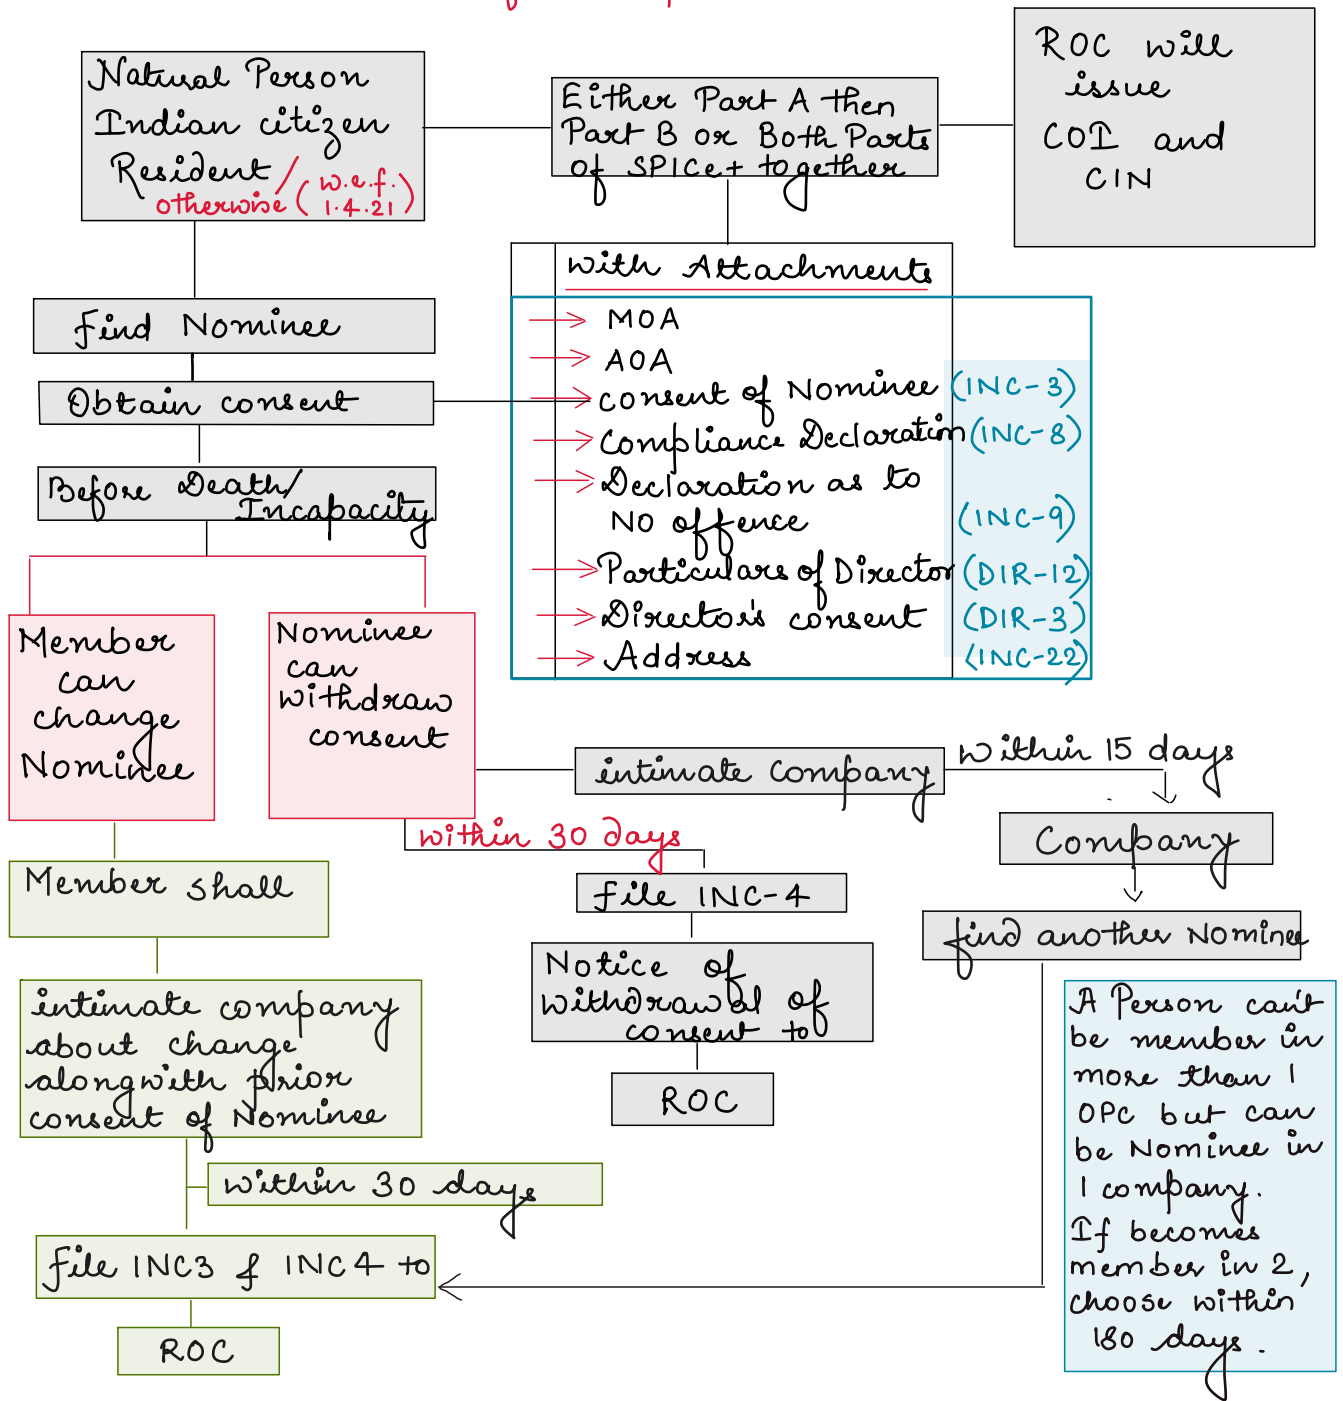 Natural Person
Indian citizen
Resident/
otherwise (w.e.f.
1.4.21)
Either Part A then
Part B or Both Parts
of SPICe+ together
ROC will
issue
COI and
CIN
find Nominee
Obtain consent
Before Death/
Incapacity
with Attachments
MOA
AOA
consent of Nominee (INC-3)
Compliance Declaration (INC-8)
Declaration as to
NO offence (INC-9)
Particulars of Director (DIR-12)
Director's consent (DIR-3)
Address (INC-22)
Member
can
change
Nominee
Nominee
can
withdraw
consent
intimate company
within 15 days
Company
find another Nominee
within 30 days
file INC-4
Notice of
withdrawal of
consent to
ROC
Member shall
intimate company
about change
alongwith prior
consent of Nominee
within 30 days
file INC3 & INC4 to
ROC
A Person can't
be member in
more than 1
OPC but can
be Nominee in
1 company.
If becomes
member in 2,
choose within
180 days.